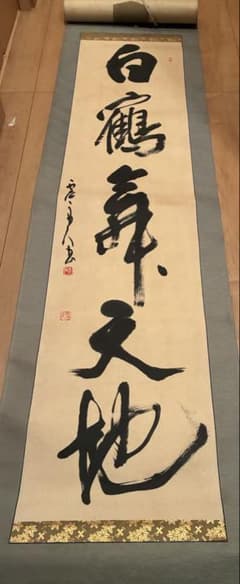 白鶴舞天地